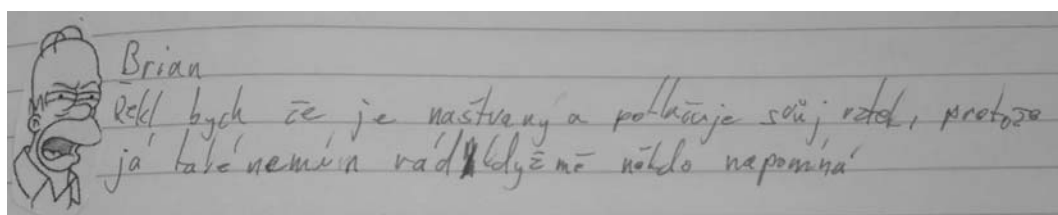 Brian
Řekl bych že je naštvaný a potlačuje svůj vztek, protože
já také nemám rád když mě někdo napomíná